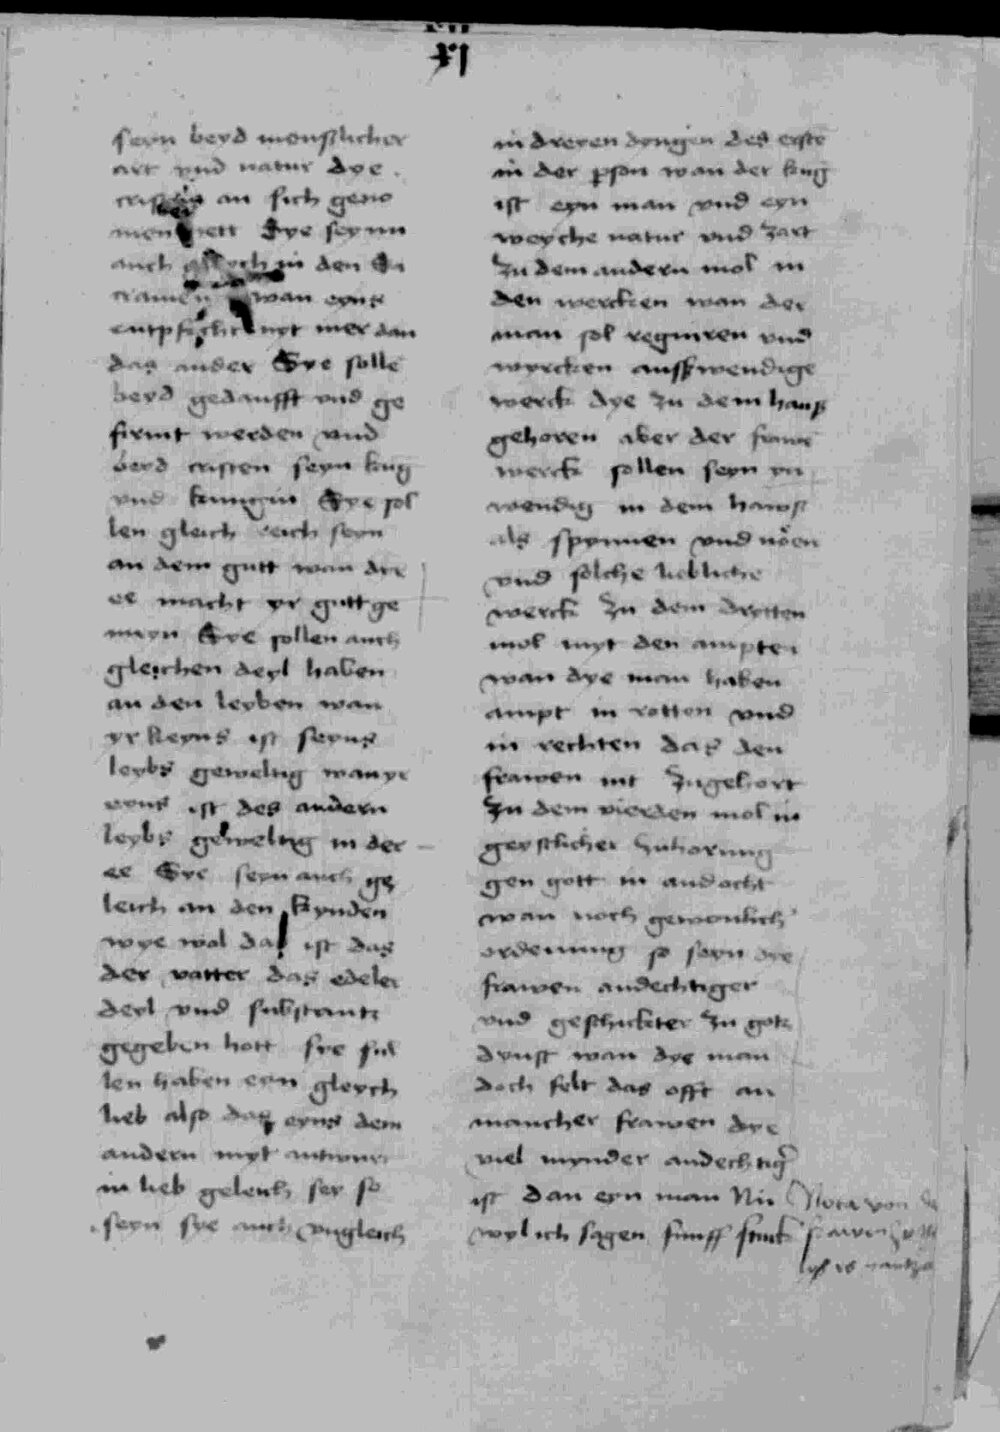 lx
seyn beyd menschlicher
art vnd natur dye
cristus an sich geno
men hett Sye seynn
auch gleych in den Sa
cramen wan eyns
entpfecht nyt mer dan
das ander Sye solle
beyd gedaufft vnd ge
firmt werden vnd
beyd cristen seyn kng
vnd kunigin Sye sol
len gleich reich seyn
an dem gutt wan dye
ee macht yr gutt ge
meyn Sye sollen auch
gleichen deyl haben
an den leyben wan
yr keyns ist seyns
leybs geweltig wan yr
eyns ist des andern
leybs geweltig in der
ee Sye seyn auch ge
leich an den kynden
wye wol das ist das
der vatter das edeler
deyl vnd substantz
gegeben hott sye sul
len haben eyn gleych
lieb also das eyns dem
andern myt antwurt
in lieb geleich sey so
seyn sye auch vngleich
in dreyen dyngen des erste
in der pson wan der kng
ist eyn man vnd eyn
weyche natur vnd zart
Zu dem andern mol in
den wercken wan der
man sol reguiren vnd
wyrcken ausswendige
werck dye zu dem hauss
gehoren aber der frawe
werck sollen seyn yn
wendig in dem hawss
als spynnen vnd nöen
vnd solche liebliche
werck Zu dem drytten
mol myt den ampten
wan dye man haben
ampt in rotten vnd
in rechten das den
frawen nit Zugehort
Zu dem vierden mol in
geystlicher
gen gott in andocht
wan noch gewonlich
ordenung so seyn dye
frawen andechtiger
vnd geschickter Zu gotz
dynst wan dye man
doch felt das offt an
mancher frawen dye
viel mynder andechtig
ist dan eyn man Nu
wyl ich sagen funff stuck
Nota von
frawen